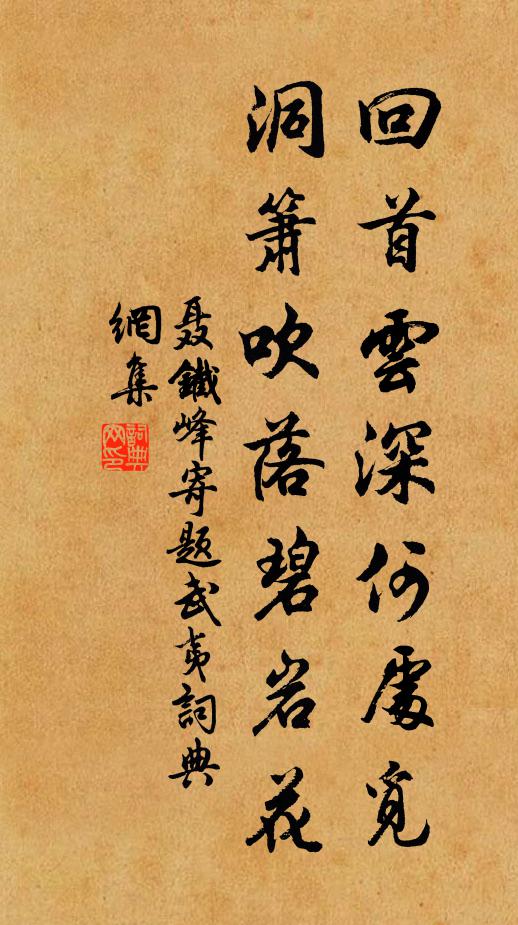 回首雲深何處覓
洞簫吹落碧岩花
聂鐵峰寄题武夷詞典
網集
詞典
网印